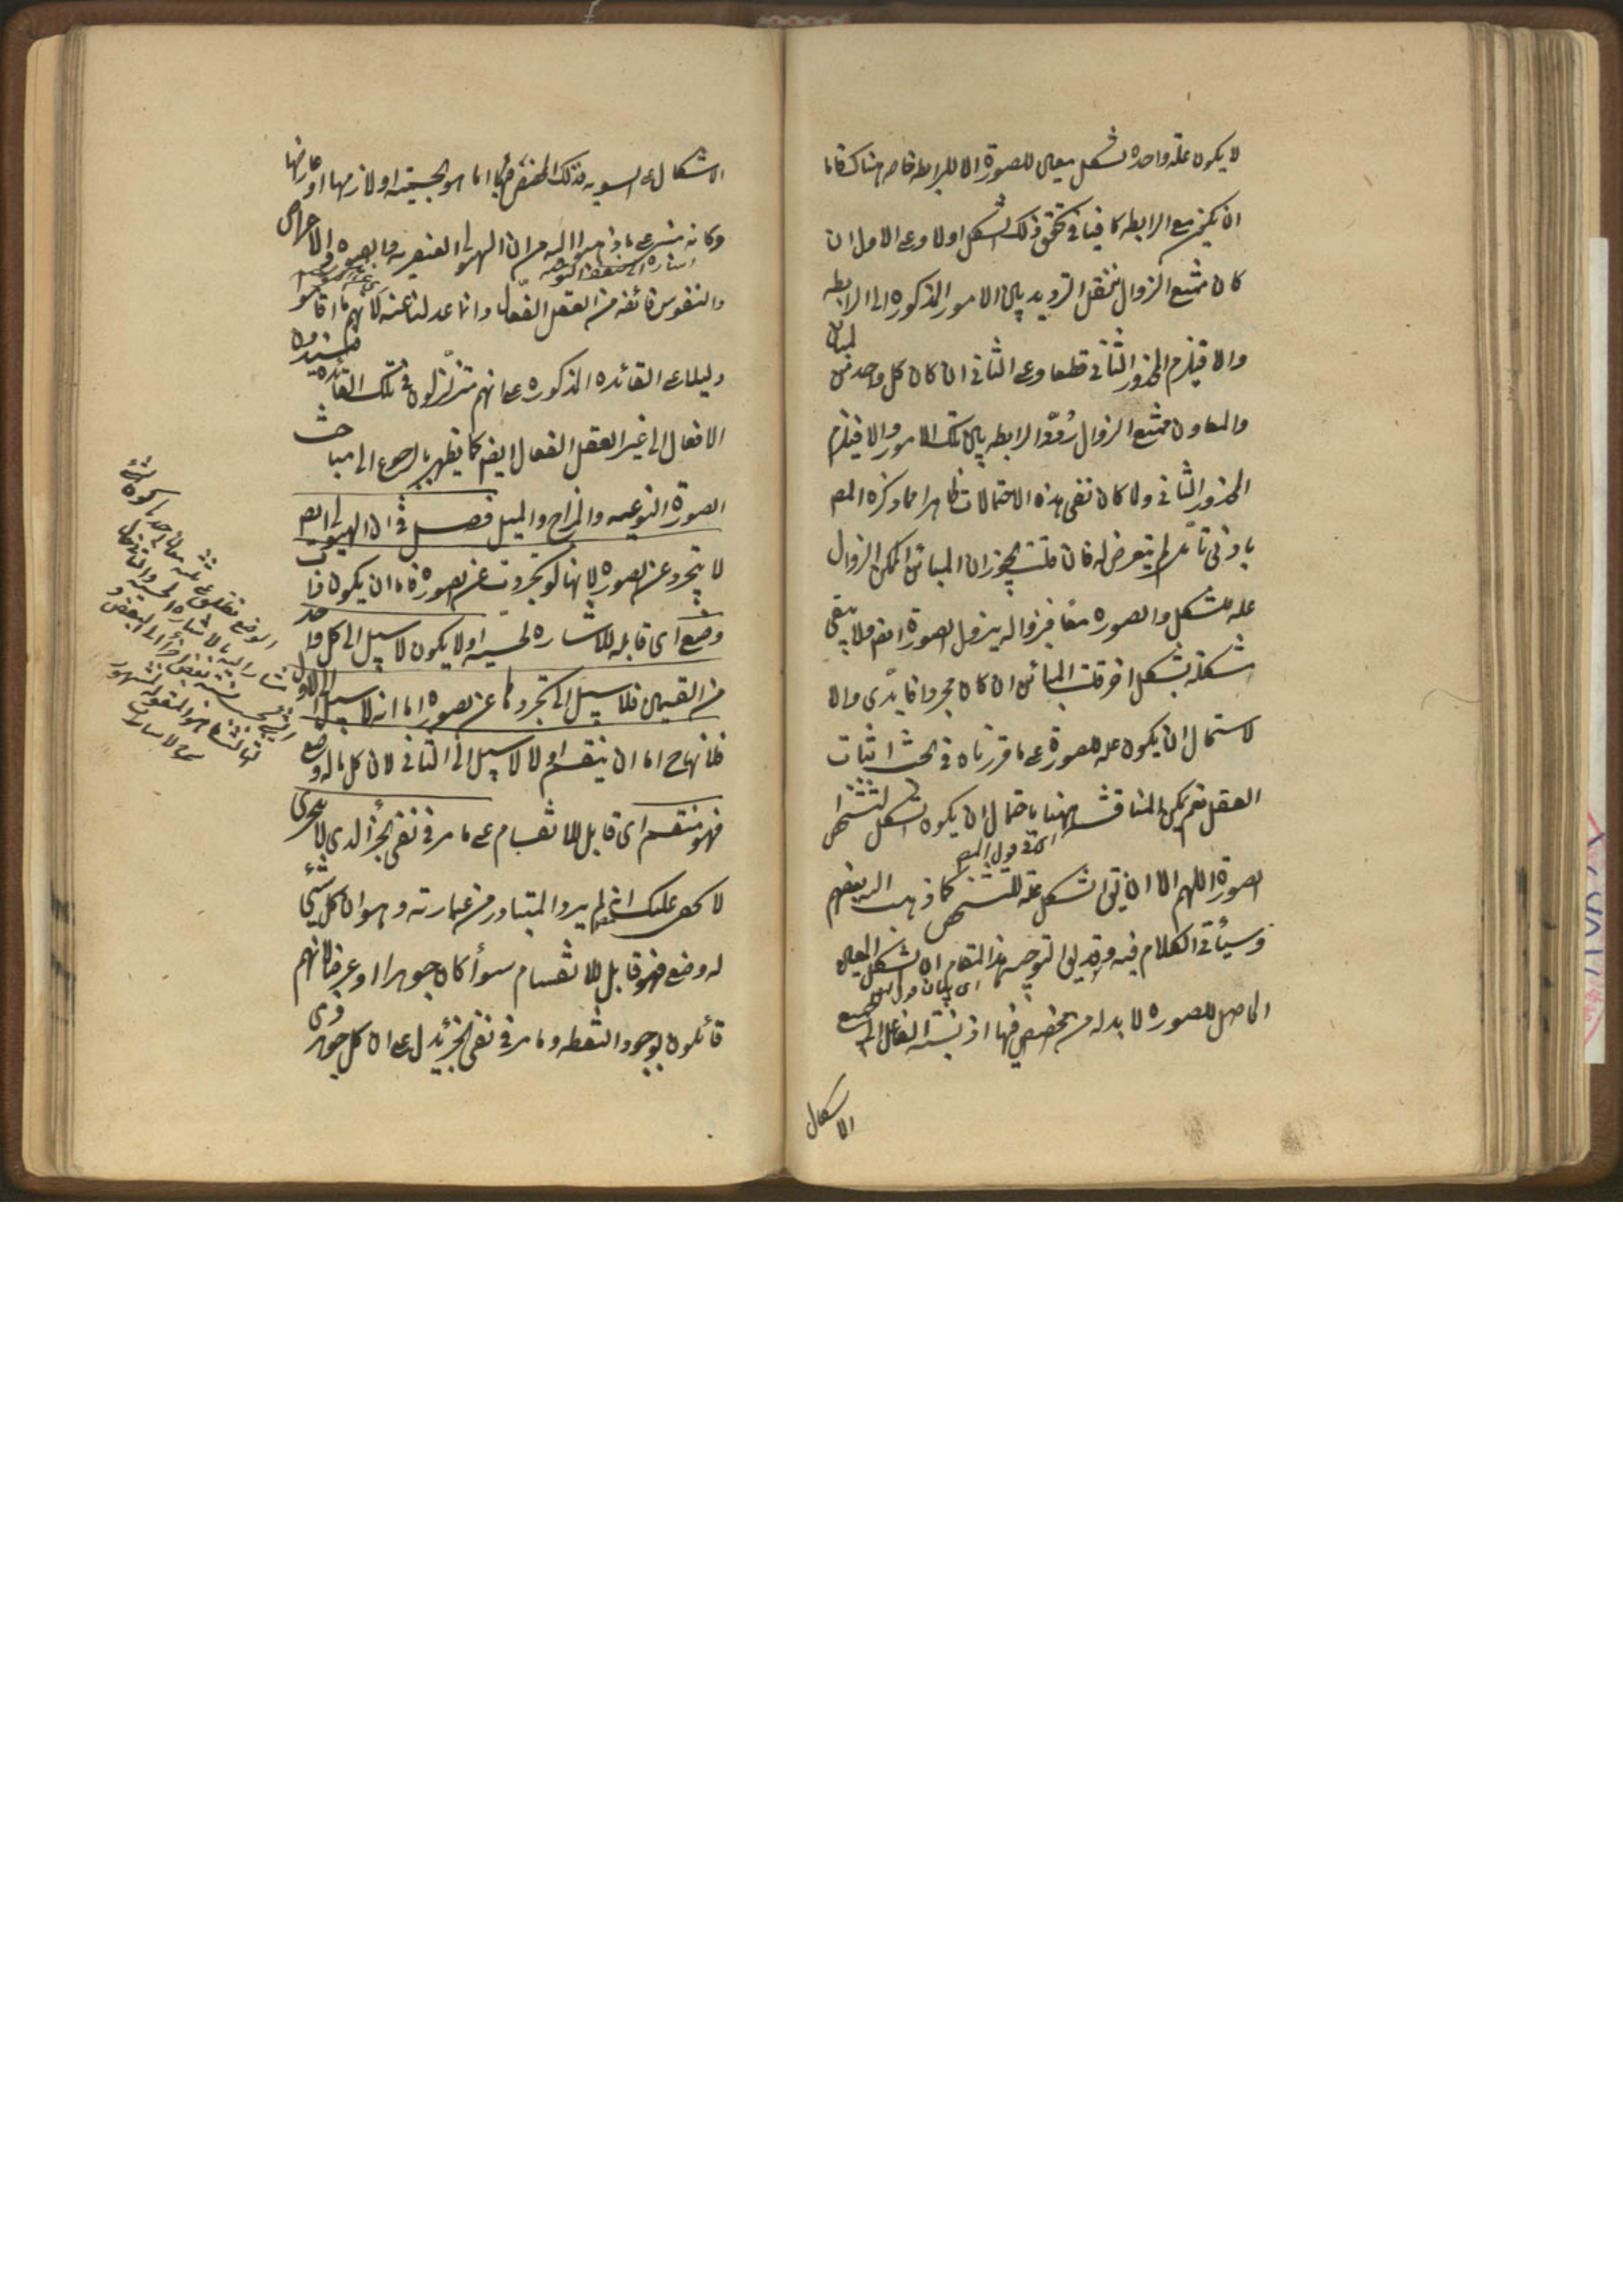 لا يكون علة واحدة لشكل معين للصورة الا لرابطة خاصة هناك فاما
ان يكون مع الرابطة كافيا في تحقق ذلك الشكل اولا وعلى الاول ان
كان ممتنع الزوال ننقل الترديد بين الامور المذكورة الى الرابطة
والا فيلزم المحذور الثاني قطعا وعلى الثاني ان كان كل واحد من المباين
والمعاون ممتنع الزوال ردد الرابطة بين تلك الامور والا فيلزم
المحذور الثاني ولما كان نفى هذه الاحتمالات ظاهرا مما ذكره المص
بادنى تأمل لم يتعرض له فان قلت يجوز ان المباين الممكن الزوال
علة للشكل والصورة معا فبزواله يزول الصورة ايضا فلا يبقى
متشكلة بشكل اخر قلت المباين ان كان مجردا فابدى والا
لاستحال ان يكون علة للصورة على ما قررناه في بحث اثبات
العقل نعم يمكن المناقشة ههنا باحتمال ان يكون الشكل لتشخص
الصورة اللهم الا ان يق الشكل علة للتشخص كما ذهب اليه بعضهم
وسيأتي الكلام فيه وقد يق لتوجيه هذا المقام ان الشكل المعين
الحاصل للصورة لا بد له من مخصص فيها اذ نسبة الفاعل الى جميع
الاشكال
الاشكال على السوية فذلك المخصص فيها اما هو الجسمية او لازمها او عارضها
وكانه مبنى على ما ذهبوا اليه من ان الهيولى العنصرية والصورة والاعراض
والنفوس فائضة من العقل الفعال وانما عدلنا عنه لانهم ما اقاموا
دليلا على القاعدة المذكورة على انهم متزلزلون في تلك القاعدة
الافعال الى غير العقل الفعال ايضا كما يظهر بالرجوع الى مباحث
الصورة النوعية والمزاج والميل فصل في ان الهيولى ايض
لا يتجرد عن الصورة لانها لو تجردت عن الصورة فاما ان يكون ذات
وضع اى قابلة للاشارة الحسية اولا يكون لا سبيل الى كل واحد
من القسمين فلا سبيل الى تجردها عن الصورة اما انه لا سبيل الى الاول
فلانها ح اما ان ينقسم اولا لا سبيل الى الثاني لان كل ما له وضع
فهو منقسم اى قابل للانقسام على ما مر في نفى الجزء الذى لا يتجزى
لا يخفى عليك انه لم يرد المتبادر من عبارته وهو ان كل شئ
له وضع فهو قابل للانقسام سواء كان جوهرا او عرضا لانهم
قائلون بوجود النقطة وما مر في نفى الجزء يدل على ان كل جوهر ذى